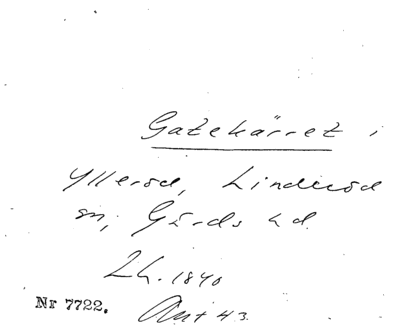 Gatekärret i
Ylleröd, Linderöd
sn, Gärds hd.
Lh. 1840
Nr 7722. Ant 43.